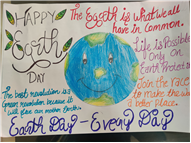 HAPPY
Earth
DAY
The Earth is what we all
have in Common.
Life is Possible
Only on
Earth Protect
Join the race
to make the
a better place.
The best revolution is
Green revolution because it
will place our mother Earth.
Earth Day - Every Day